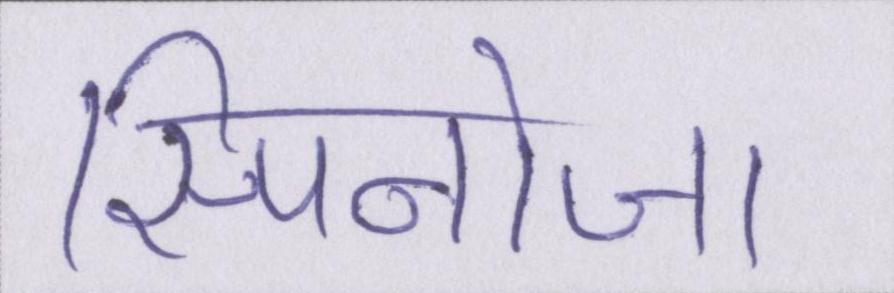 स्पिनोजा